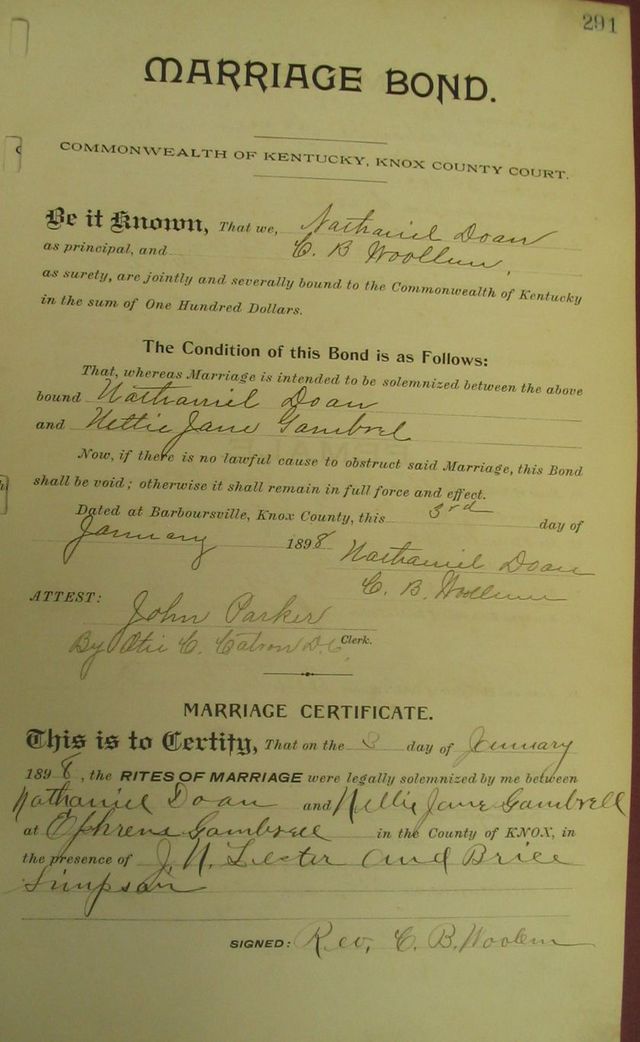 291
MARRIAGE BOND.
COMMONWEALTH OF KENTUCKY, KNOX COUNTY COURT.
Be it Known, That we, Nathaniel Doan
as principal, and C. B Woollum,
as surety, are jointly and severally bound to the Commonwealth of Kentucky
in the sum of One Hundred Dollars.
The Condition of this Bond is as Follows:
That, whereas Marriage is intended to be solemnized between the above
bound Nathaniel Doan
and Nettie Jane Gambrel
Now, if there is no lawful cause to obstruct said Marriage, this Bond
shall be void; otherwise it shall remain in full force and effect.
Dated at Barboursville, Knox County, this 3rd day of
January 1898 Nathaniel Doan
C. B. Woollum
ATTEST:
John Parker
By C. Catron D.C. Clerk.
MARRIAGE CERTIFICATE.
This is to Certify, That on the 3 day of January
1898, the RITES OF MARRIAGE were legally solemnized by me between
Nathaniel Doan and Nellie Jane Gambrell
at Gambrell in the County of KNOX, in
the presence of J. N. Lester and Brice
Simpson
SIGNED: Rev. C. B. Woolum